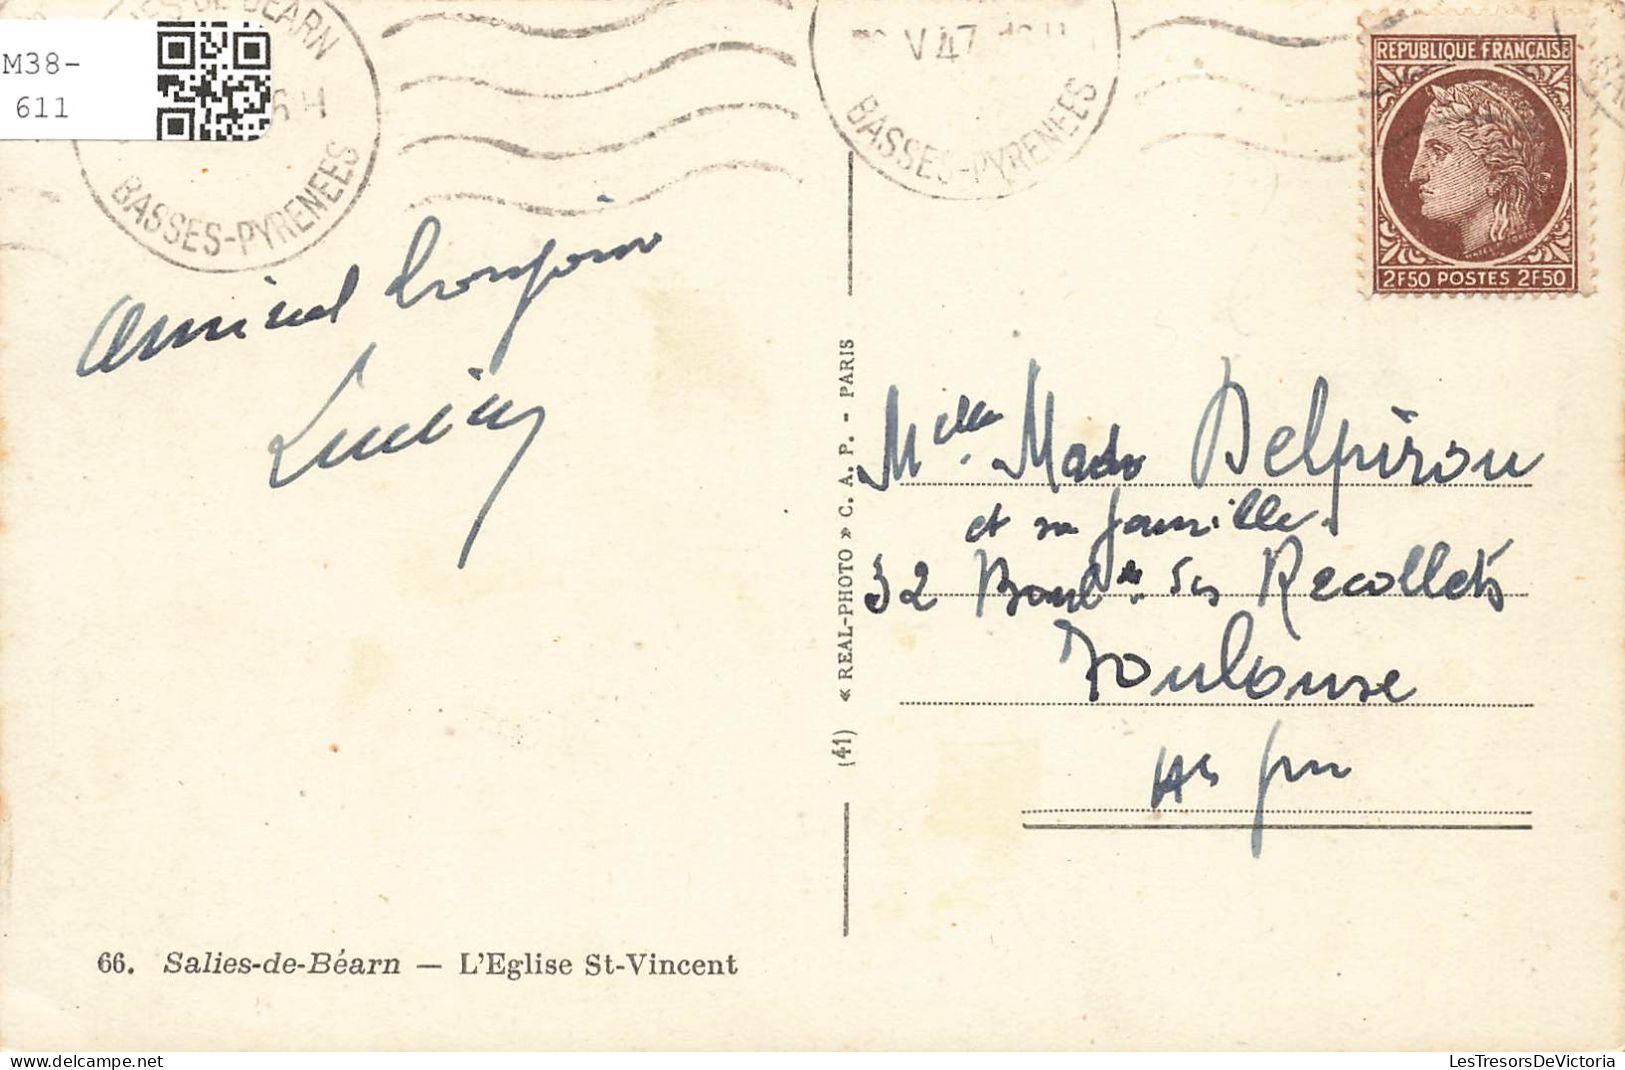 M38-
611
DE BÉARN
6 H
BASSES-PYRENEES
V 47
BASSES-PYRENEES
REPUBLIQUE FRANÇAISE
2F50 POSTES 2F50
amical bonjour
Lucien
(41) « REAL-PHOTO » C. A. P. - PARIS
Melle. Mado Delpirou
et sa famille.
32 Boul. des Recollets
Toulouse
Hte Gne
66. Salies-de-Béarn — L'Eglise St-Vincent
LesTresorsDeVictoria